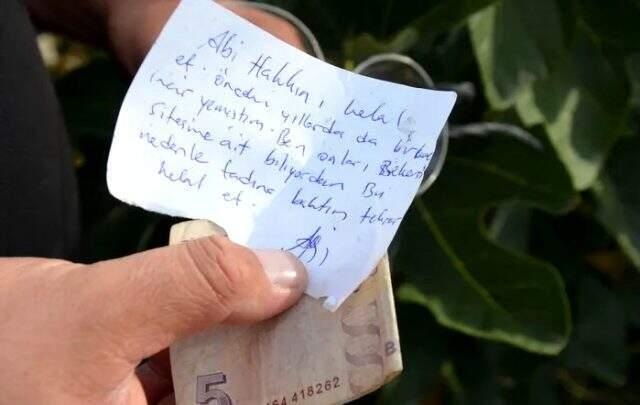 Abi Hakkını helal
et. önceki yıllarda da birkaç
incir yemiştim. Ben onları
sitesine ait biliyordum Bu
nedenle tadına baktım tekrar
helal et.
5
64 418262
B